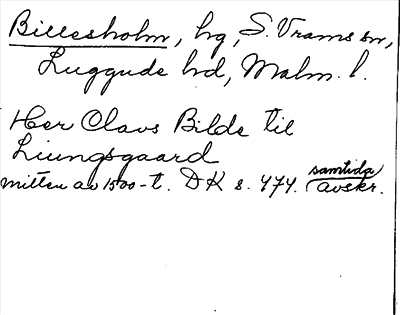 Billesholm, hg, S. Vrams sn,
Luggude hd, Malm. l.
Her Claus Bilde til
Liungsgaard
mitten av 1500-t. DK s. 474. samtida avskr.